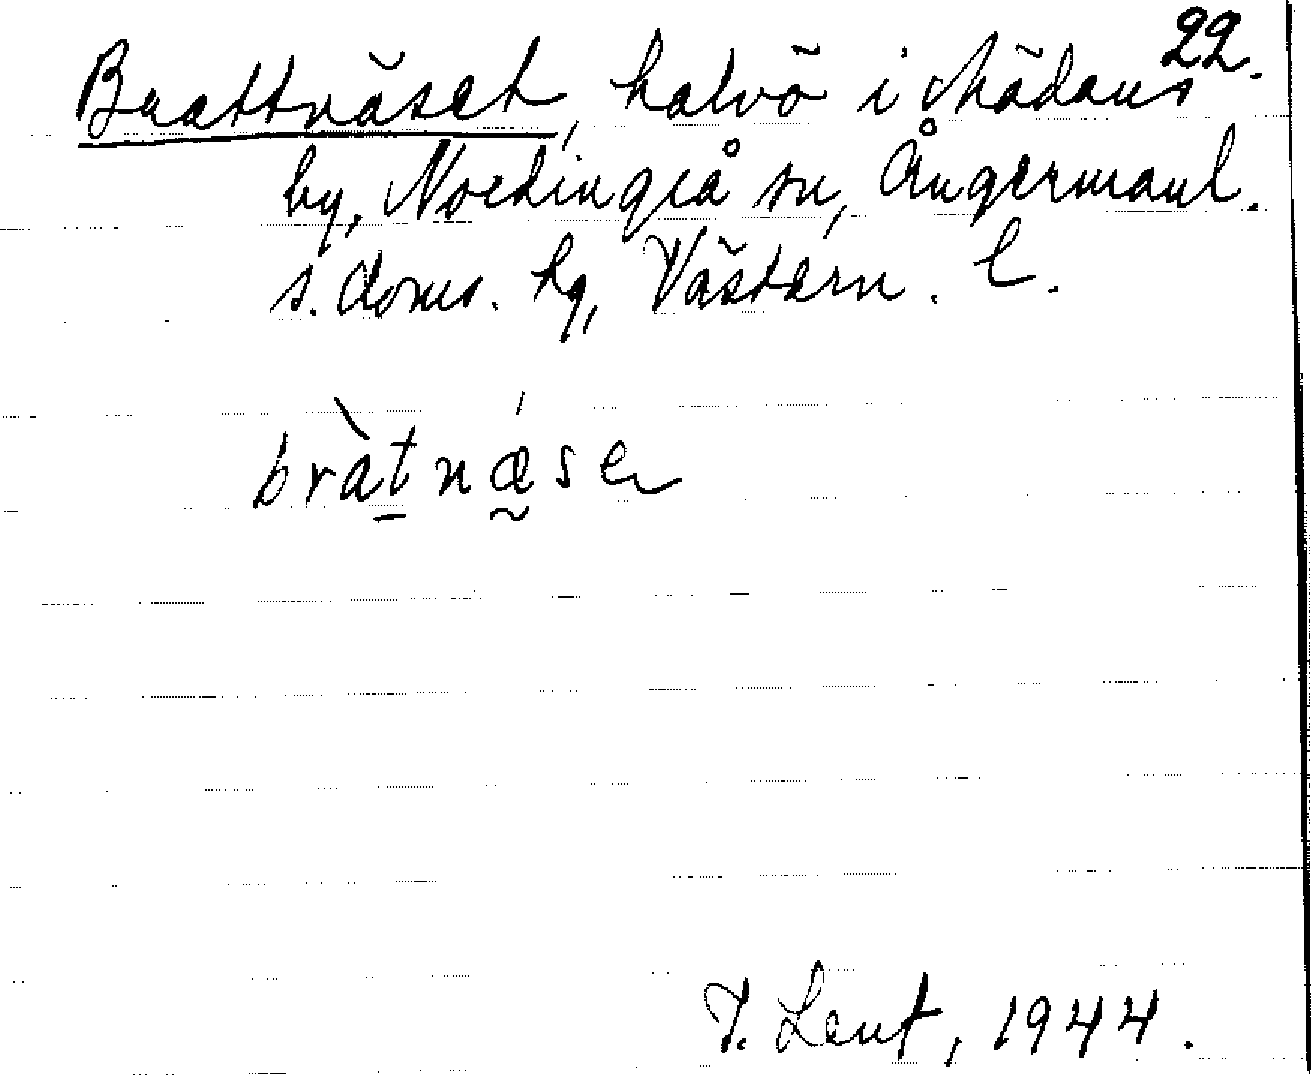 22.
Brattnäset, halvö i Mädans
by, Nordingrå sn, Ångermanl.
s. doms. hg, Västern. l.
bràtnǽse
T. Lent, 1944.